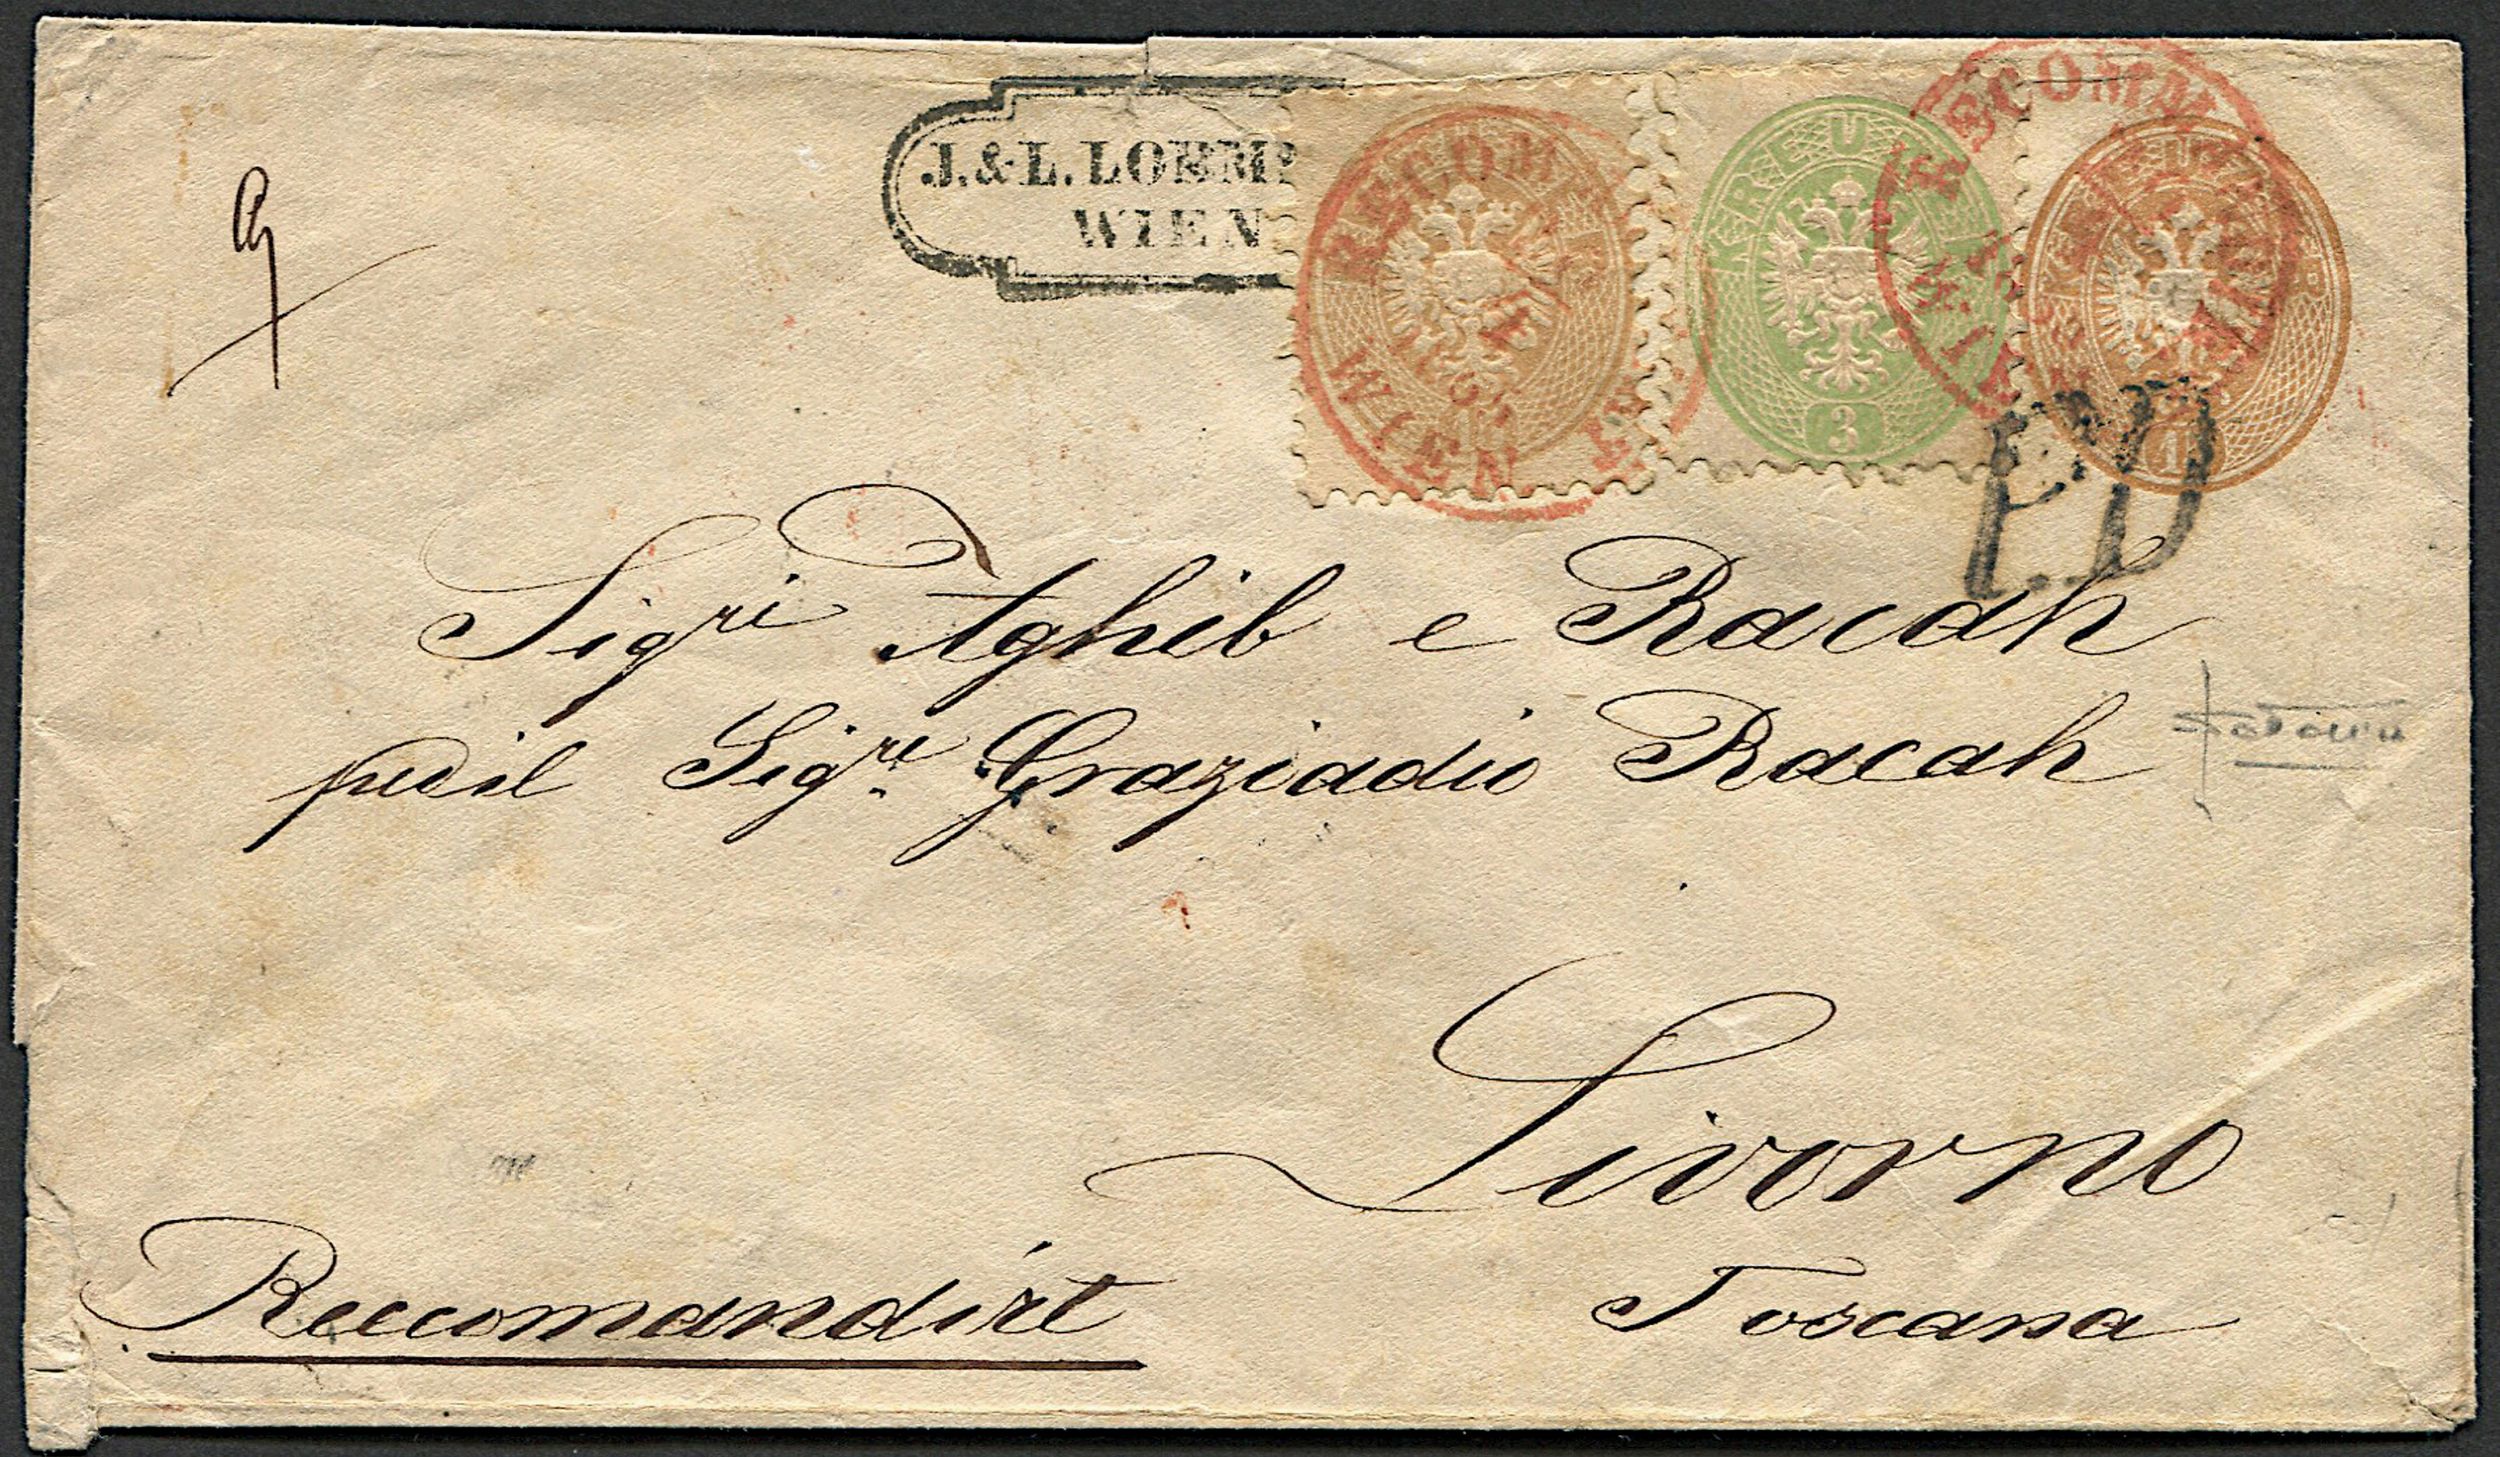 J. & L. LOHM
WIEN
RECOMM
WIEN
KREU
3
RECOMM
WIEN
P.D
Sigri Aghib e Racah
per il Sigre Graziadio Racah
Livorno
Toscana
Reccomandirt